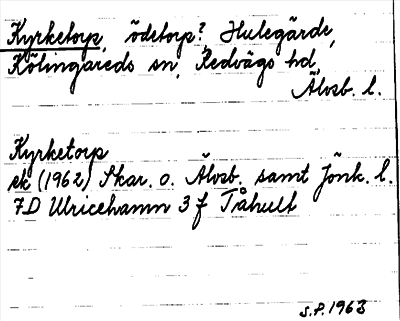 Kyrketorp, ödetorp?, Hulegärde,
Kölingareds sn, Redvägs hd,
Älvsb. l.
Kyrketorp
ek (1962) Skar. o. Älvsb. samt Jönk. l.
7D Ulricehamn 3 f Tåhult
S.P. 1963